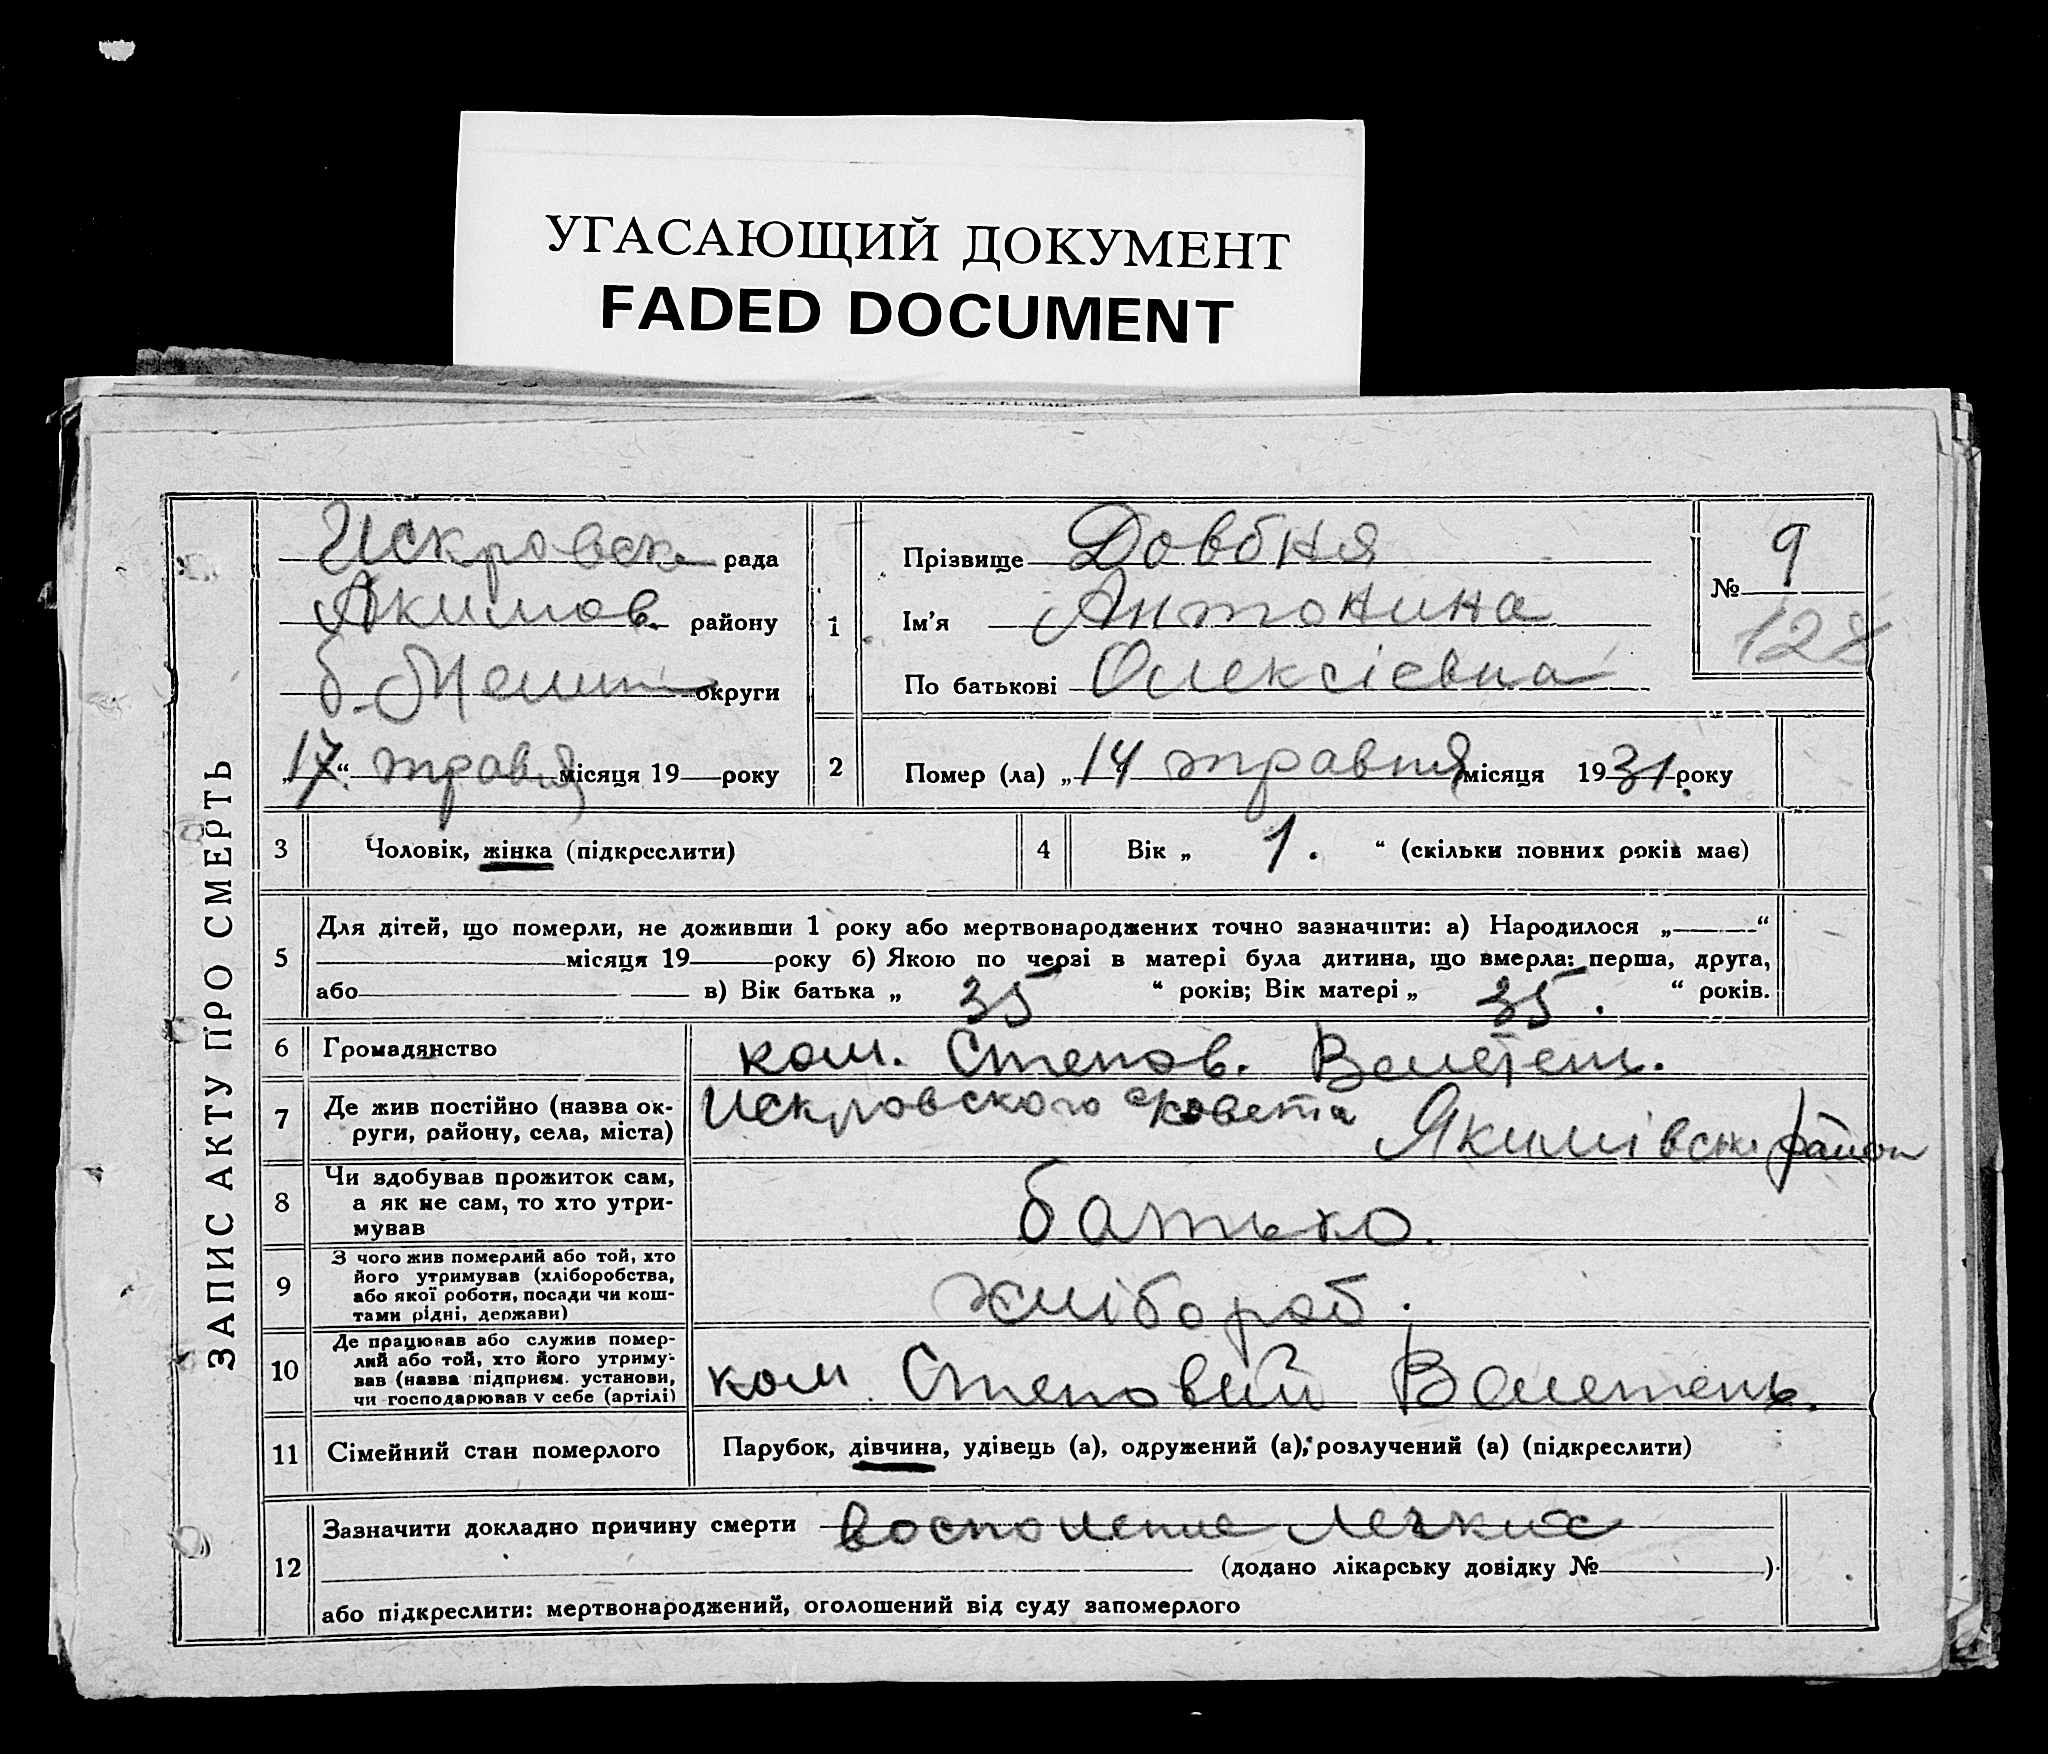 УГАСАЮЩИЙ ДОКУМЕНТ
FADED DOCUMENT
ЗАПИС АКТУ ПРО СМЕРТЬ
Искровск рада
Акимов. району
б. Мелит округи
„17“ травня місяця 19 року
1
Прізвище Довбня
Ім'я Антонина
По батькові Олексієвна
№ 9
128
2
Помер (ла) „14 травня місяця 1931. року
3 Чоловік, жінка (підкреслити)
4 Вік „ 1. “ (скільки повних років має)
5 Для дітей, що померли, не доживши 1 року або мертвонароджених точно зазначити: а) Народилося „ “
місяця 19 року б) Якою по черзі в матері була дитина, що вмерла: перша, друга,
або в) Вік батька „ 35 “ років; Вік матері „ 35. “ років.
6 Громадянство ком. Степов. Велетень.
7 Де жив постійно (назва округи, району, села, міста)
Искровского совета Якимівськ район
8 Чи здобував прожиток сам,
а як не сам, то хто утри-
мував
батько.
9 З чого жив померлий або той, хто
його утримував (хліборобства,
або якої роботи, посади чи кош-
тами рідні, держави)
хлібороб.
10 Де працював або служив помер-
лий або той, хто його утриму-
вав (назва підприєм. установи,
чи господарював у себе (артілі)
ком. Степовий Велетень.
11 Сімейний стан померлого Парубок, дівчина, удівець (а), одружений (а), розлучений (а) (підкреслити)
12 Зазначити докладно причину смерти восполение легких
(додано лікарську довідку № )
або підкреслити: мертвонароджений, оголошений від суду запомерлого